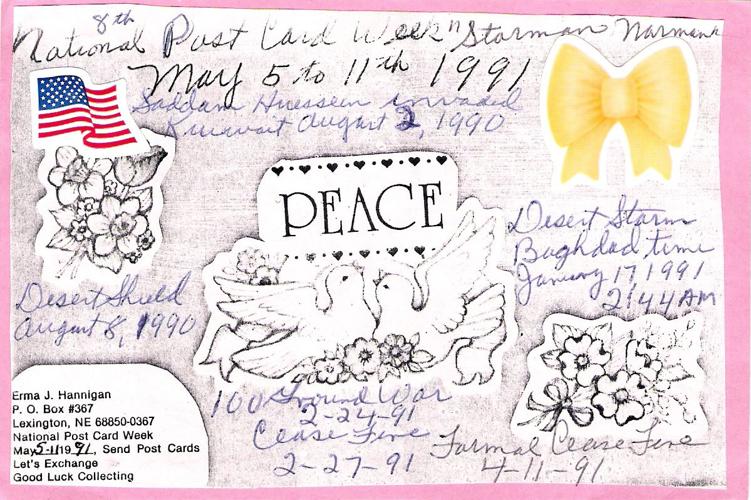 8th
National Post Card Week "Storman Norman"
May 5 to 11th 1991
Saddam Huessein invaded
Kuwait August 2, 1990
PEACE
Desert Storm
Baghdad time
January 17, 1991
2:44 AM
Desert Shield
August 8, 1990
100 Ground War
2-24-91
Cease Fire
2-27-91
Formal Cease Fire
4-11-91
Erma J. Hannigan
P. O. Box #367
Lexington, NE 68850-0367
National Post Card Week
May 5-11 19 91, Send Post Cards
Let's Exchange
Good Luck Collecting